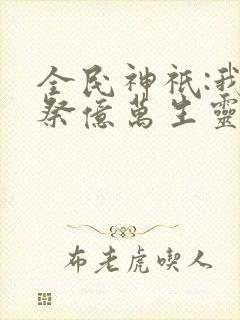 全民神祇:我
祭億萬生靈
布老虎喫人